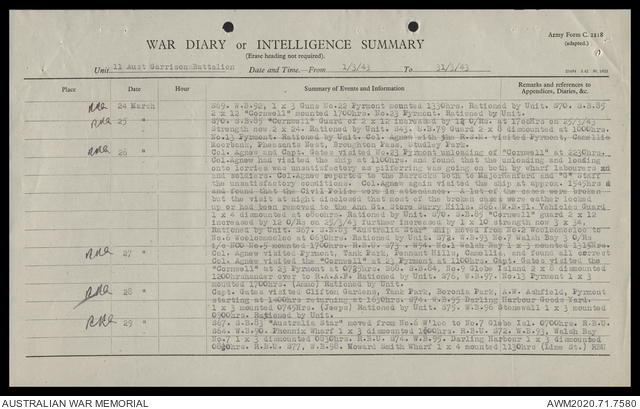 Army Form C. 2118
(adapted.)
WAR DIARY or INTELLIGENCE SUMMARY
(Erase heading not required).
Unit 11 Aust Garrison Battalion Date and Time.—From 1/3/43 To 31/3/43
Place Date Hour Summary of Events and Information Remarks and references to
Appendices, Diaries, &c.
24 March S69. W.B.92, 1 x 3 Guns No.22 Pyrmont mounted 1330hrs. Rationed by Unit. S70. S.B.85
2 x 12 "Cornwell" mounted 1700hrs. No.23 Pyrmont. Rationed by Unit.
25 " S70. S.B.85 "Cornwell" Guard of 2 x 12 increased by 12 O/Rs. at 1745hrs on 25/3/43
Strength now 2 x 24. Rationed by Unit. S43. S.B.79 Guard 2 x 8 dismounted at 1000hrs.
No.13 Pyrmont. Rationed by Unit. Col. Agnew with the R.S.M. visited Pyrmont, Camellia
Moorbank, Pheasants Nest, Broughton Pass, Studley Park.
26 " Col. Agnew and Capt. Gates visited No.23 Pyrmont unloading of "Cornwell" at 2230hrs.
Col.Agnew had visited the ship at 1100hrs. and found that the unloading and loading
onto lorries was unsatisfactory as pilferring was going on both by wharf labourers
and soldiers. Col.Agnew reported to the Barracks both to Major Renford and "G" staff
the unsatisfactory conditions. Col. Agnew again visited the ship at approx. 1545hrs
and found that the Civil Police were in attendance. A lot of the cases were broken
but the visit at night disclosed that most of the broken cases were either locked
up or had been removed to the Ann St. Store Surry Hills. S66. W.B.91. Vehicles Guard
1 x 4 dismounted at 0800hrs. Rationed by Unit. S70. S.B.85 "Cornwell" guard 2 x 12
increased by 12 O/Rs on 25/3/43 further increased by 1 x 10 strength now 3 x 34.
Rationed by Unit. S67. S.B.83 "Australia Star" ship moved from No.2 Woolloomooloo to
No.6 Woolloomooloo at 0630hrs. Rationed by Unit. S72. W.B.93 No.7 Walsh Bay 3 O/Rs
1 NCO No.5 mounted 1700hrs. R.B.U. S73 W.B.94. No.1 Walsh Bay 1 x 3 mounted 1315hrs.
27 " Col. Agnew visited Pyrmont, Tank Park, Pennant Hills, Camellia, and found all correct
Col. Agnew visited the "Cornwell" at 23 Pyrmont at 1100hrs. Capt. Gates visited the
"Cornwell" at 23 Pyrmont at 0725hrs. S68. S.B.84, No.9 Glebe Island 2 x 8 dismounted
1200hrs hander over to R.A.A.F. Rationed by Unit. S76, W.B.97. No.13 Pyrmont 1 x 3
mounted 1700hrs. (Ammo) Rationed by Unit.
28 " Capt. Gates visited Clifton Gardens, Tank Park, Boronia Park, A.W. Ashfield, Pyrmont
starting at 1400hrs returning at 1630hrs. S74. W.B.95 Darling Harbour Goods Yard.
1 x 3 mounted 0745hrs. (Jeeps) Rationed by Unit. S75. W.B.96 Stonewall 1 x 3 mounted
0900hrs. Rationed by Unit.
29 " S67. S.B.83 "Australia Star" moved from No.6 W'loo to No.7 Glebe Isl. 0700hrs. R.B.U.
S64. W.B.90. Phennix Wharf 1 x 3 dismounted 1600hrs. R.B.U. S72. W.B.93, Walsh Bay
No.7 1 x 3 dismounted 0830hrs. R.B.U. S74. W.B.95. Darling Harbour 1 x 3 dismounted
0800hrs. R.B.U. S77, W.B.98. Howard Smith Wharf 1 x 4 mounted 1130hrs (Lime St.) RBU
AUSTRALIAN WAR MEMORIAL AWM2020.71.7580